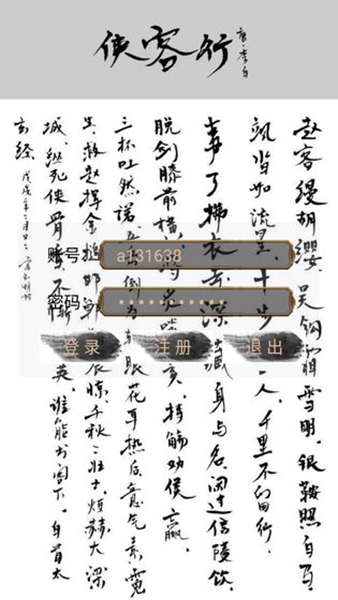 侠客行
唐·李白
赵客缦胡缨,吴钩霜雪明。银鞍照白马,
飒沓如流星。十步一人,千里不留行。
事了拂衣去,深藏身与名。闲过信陵饮,
脱剑膝前横。炙啖亥,持觞劝侯嬴。
三杯吐然诺,五倒为眼花耳热后,意气素霓
生。救赵挥金槌,邯郸震惊。千秋二壮士,烜赫大梁
城。纵死侠骨香,不惭英。谁能书阁下,白首太
玄经。
账号 a131638
密码
登录 注册 退出